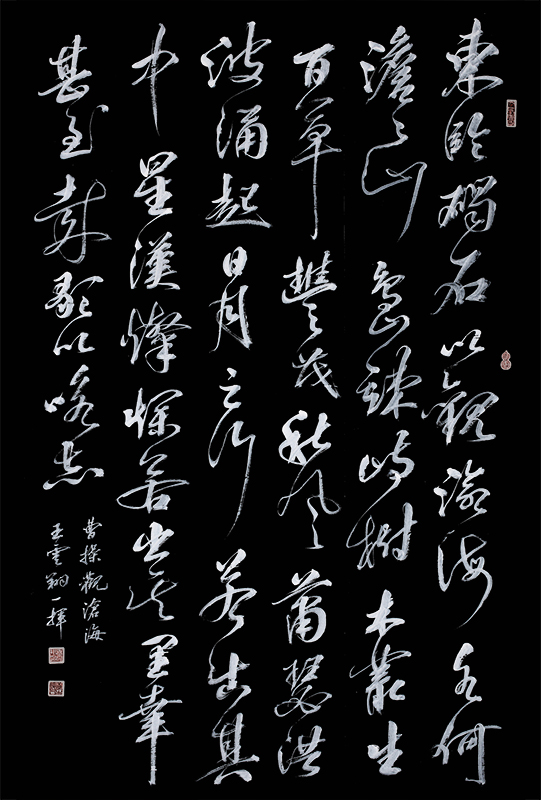 東臨碣石以觀滄海水何
澹々山島竦峙樹木叢生
百草豐茂秋風蕭瑟洪
波涌起日月之行若出其
中星漢燦爛若出其里幸
甚至哉歌以咏志
曹操觀滄海
王雲翔一揮